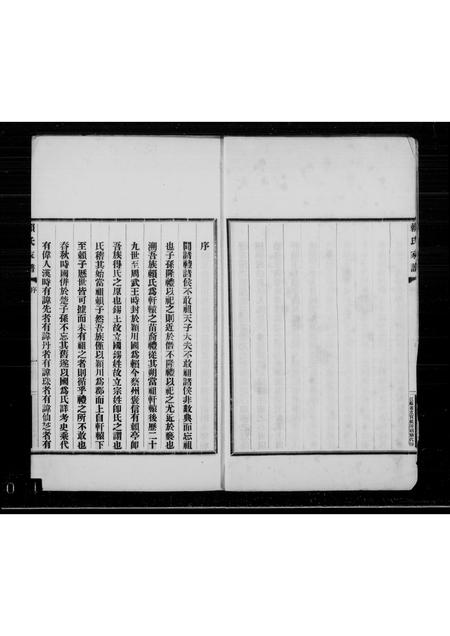 賴氏家譜
序
聞諸禮諸侯不敢祖天子大夫不敢祖諸侯非敢典而忘祖
也子孫隆禮以祀之則近於僭不隆禮以祀之尤近於褻也
溯吾族賴氏為軒轅之苗裔禮從其朔當祖軒轅後歷二十
九世至周武王時封於潁川國為賴今蔡州褒信有賴亭卽
吾族得氏之原也錫土故立國錫姓故立宗姓卽氏之謂也
氏稽其始當祖賴子然吾族僅以潁川為郡而上自軒轅下
至賴子歷世皆可據而未有祖之者則循乎禮之所不敢也
春秋時國併於楚子孫不忘其舊遂以國為氏詳考史乘代
有偉人漢時有諱先者有諱丹者有諱珠者有諱仙芝者有
賴氏家譜 序